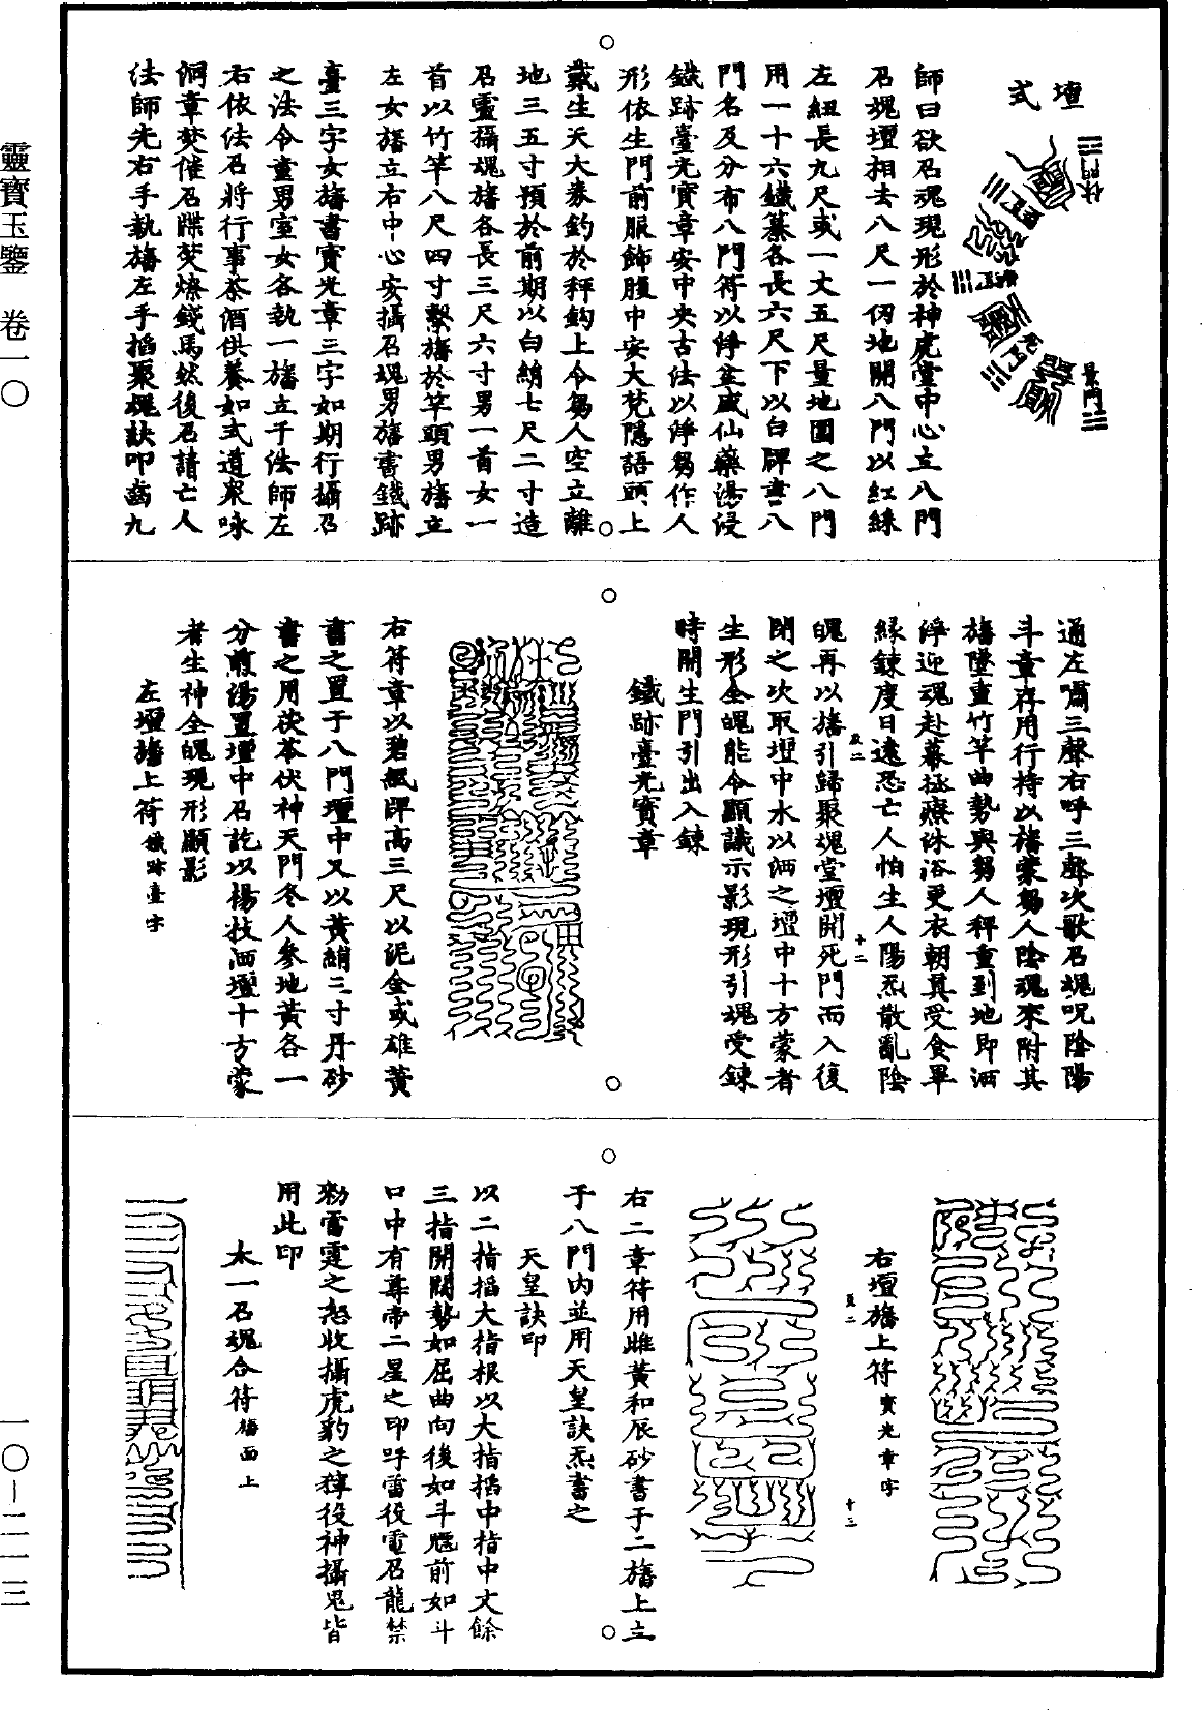 靈寶玉鑒 卷一〇
一〇-二一三
壇式
休門
景門
師曰欲召魂現形於神虎堂中心立八門
召魂壇相去八尺一仞地開八門以紅綵
左紐長九尺或一丈五尺量地圍之八門
用一十六鐵纂各長六尺下以白牌書八
門名及分布八門符以淨盆盛仙藥湯浸
鐵跡臺光寶章安中央古法以淨芻作人
形依生門前服飾腹中安大梵隱語頭上
戴生天大券鈎於秤鈎上令芻人空立離
地三五寸預於前期以白絹七尺二寸造
召靈攝魂旛各長三尺六寸男一首女一
首以竹竿八尺四寸繫旛於竿頭男旛立
左女旛立右中心安攝召魂男旛書鐵跡
臺三字女旛書寶光章三字如期行攝召
之法令童男室女各執一旛立于法師左
右依法召將行事茶酒供養如式道眾咏
洞章焚催召牒焚燎錢馬然後召請亡人
法師先右手執旛左手搯聚魂訣叩齒九
通左嘯三聲右呼三聲次歌召魂呪陰陽
斗章存用行持以旛蒙芻人陰魂來附其
旛墜重竹竿曲勢與芻人秤重到地即洒
淨迎魂赴幕拯療沐浴更衣朝真受食畢
緣鍊度日遠恐亡人怕生人陽炁散亂陰
魄再以旛引歸聚魂堂壇開死門而入復
閉之次取壇中水以洒之壇中十方蒙者
生形全魄能令顯議示影現形引魂受鍊
時開生門引出入鍊
鐵跡臺光寶章
右符章以碧紙牌高三尺以泥金或雄黃
書之置于八門壇中又以黃絹三寸丹砂
書之用茯苓伏神天門冬人參地黃各一
分煎湯置壇中召訖以楊枝洒壇十方蒙
者生神全魄現形顯影
左壇旛上符 鐵跡臺字
右壇旛上符 寶光章字
右二章符用雌黃和辰砂書于二旛上立
于八門內並用天皇訣炁書之
天皇訣印
以二指搯大指根以大指搯中指中文餘
三指開闊勢如屈曲向後如斗魁前如斗
口中有尊帝二星之印呼雷役電召龍禁
勑雷霆之怒收攝虎豹之獰役神攝鬼皆
用此印
太一召魂合符 旛面上